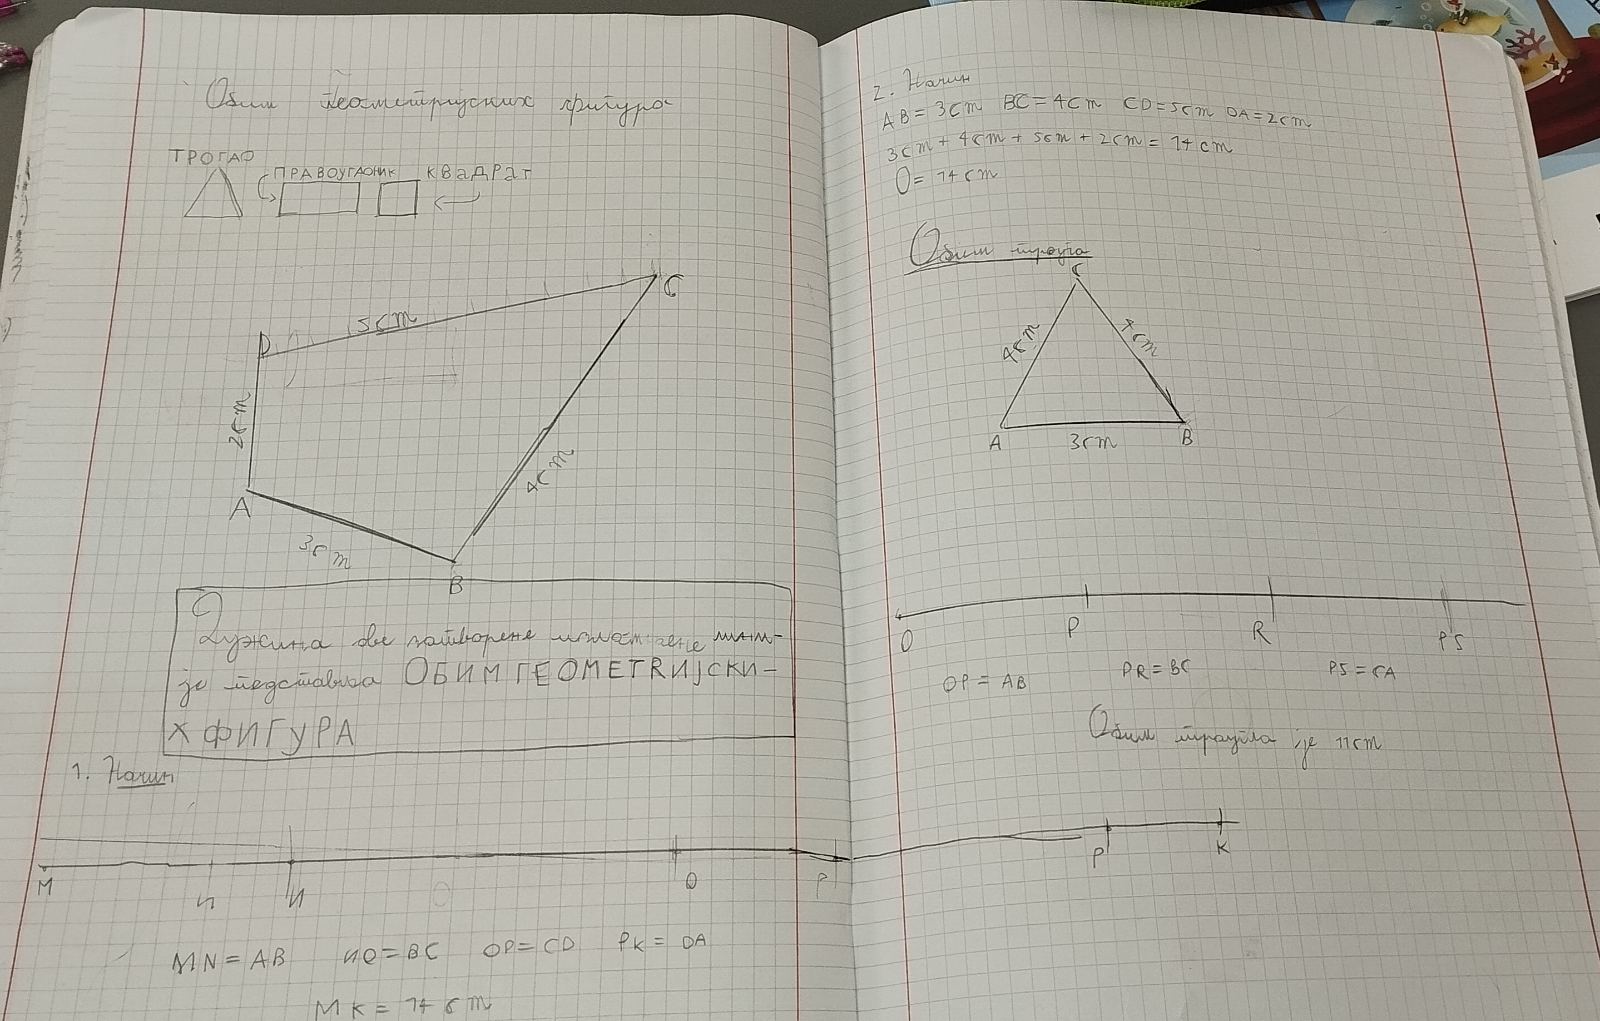 Обим геометријских фигура
ТРОГАО
ПРАВОУГАОНИК
КВаДРаТ
D
5cm
C
2cm
A
3cm
4cm
B
Дужина ове затворене изломљене лини-
је педставља ОБИМ ГЕОМЕТRИЈСКИ-
Х ФИГУРА
1. Начин
M
И
И
O
P
MN = AB ИO = BC OP = CD PK = DA
MK = 14 cm
2. Начин
AB = 3cm BC = 4cm CD = 5cm DA = 2cm
3cm + 4cm + 5cm + 2cm = 14 cm
O = 14 cm
Обим троугла
C
4cm
4cm
A
3cm
B
O
P
R
PS
OP = AB
PR = BC
PS = CA
Обим троугла је 11cm
P
K